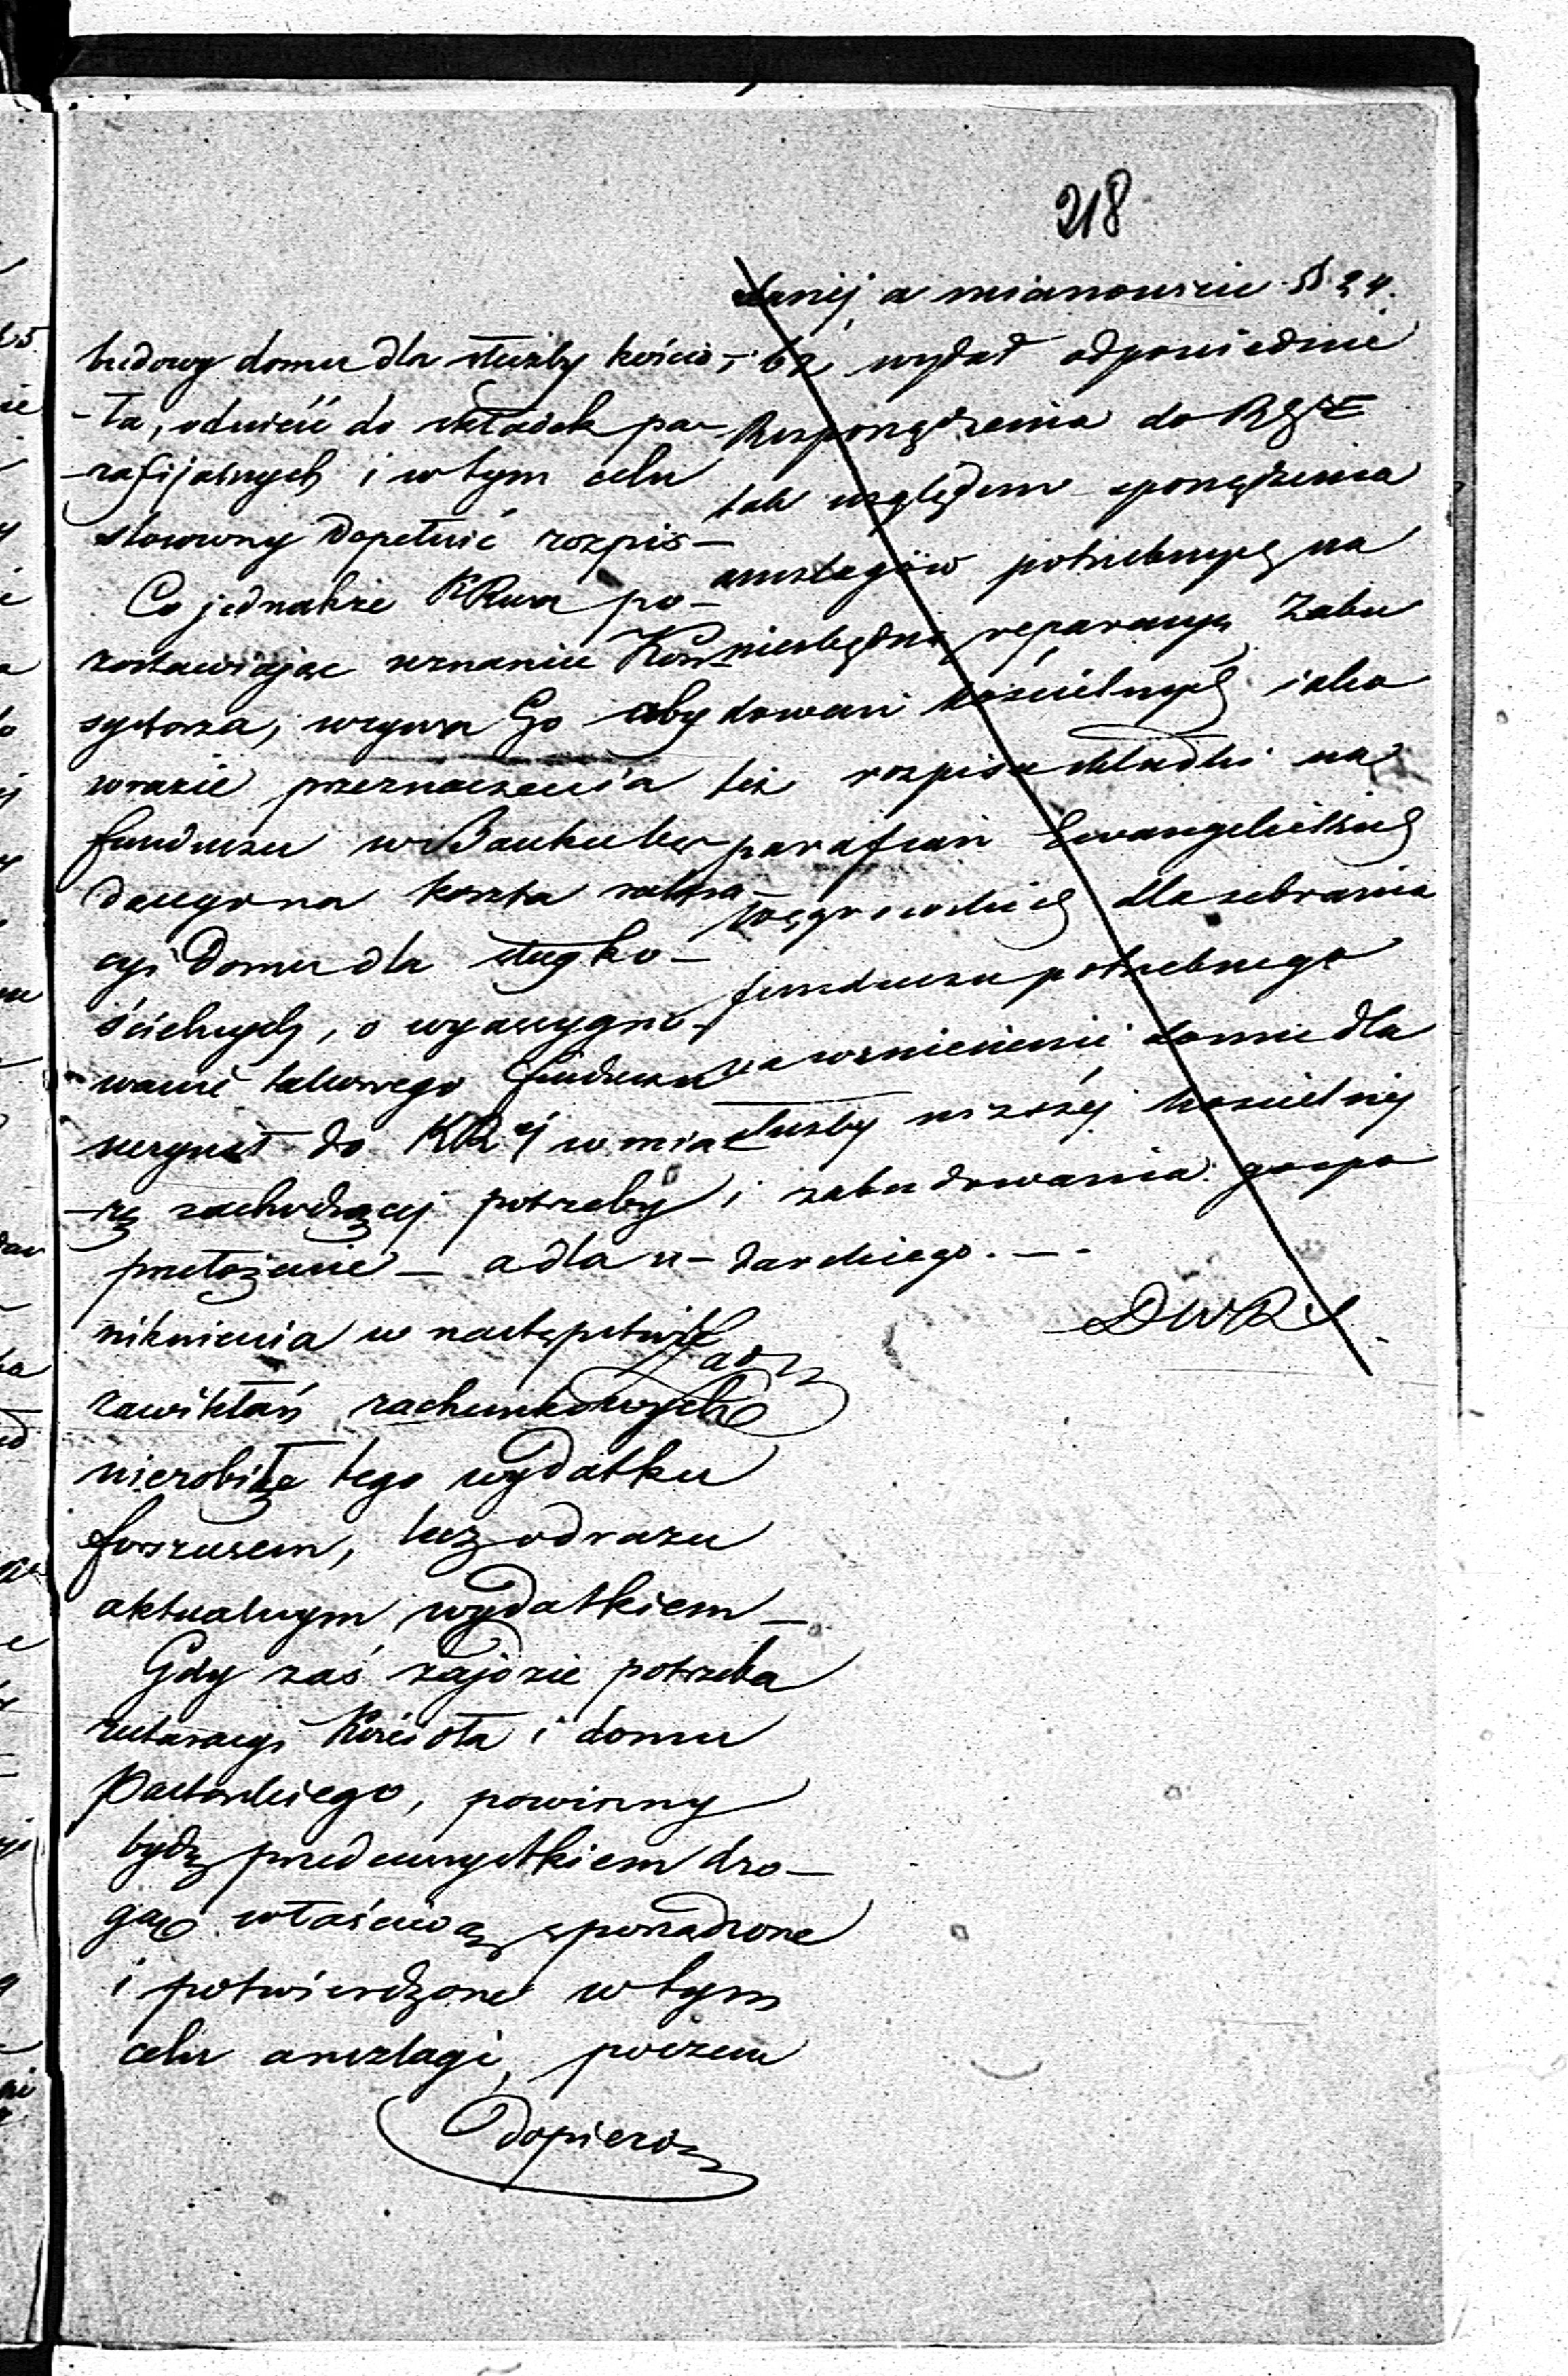 218
budowy domu dla służby kościo-
-ła, odnieść do składek pa-
-rafijalnych i w tym celu
stosowny dopełnić rozpis-
Co jednakże KRwa po-
zostawiając uznaniu Kon-
systorza, wzywa Go aby
w razie przeznaczenia
funduszu w Banku bę-
dącego na koszta restaura-
cyi Domu dla sług ko-
ścielnych, o wyassygno-
wanie takowego funduszu
uczynił do KRéj w mia-
-rę zachodzącej potrzeby
przełożenie — a dla u-
niknienia w następstwie
zawikłań rachunkowych
nierobiła tego wydatku
forszusem, lecz odrazu
aktualnym wydatkiem —
Gdy zaś zajdzie potrzeba
restauracyi Kościoła i domu
Pastorskiego, powinny
bydź przedewszystkiem dro-
gą właściwą sporządzone
i potwierdzone w tym
celu anszlagi, poczem
dopiero
danéj a mianowicie §§ 24.
i 62, wydał odpowiednie
Rozporządzenia do
tak względem sporządzenia
anszlagów potrzebnych na
niezbędną reparacyą Zabu
dowań kościelnych iako
też rozpisu składki na
parafian Ewangelickich
Węgrowskich dla zebrania
funduszu potrzebnego
na wzniesienie domu dla
służby niższéj kościelnéj
i zabudowania gospo
darskiego. — -